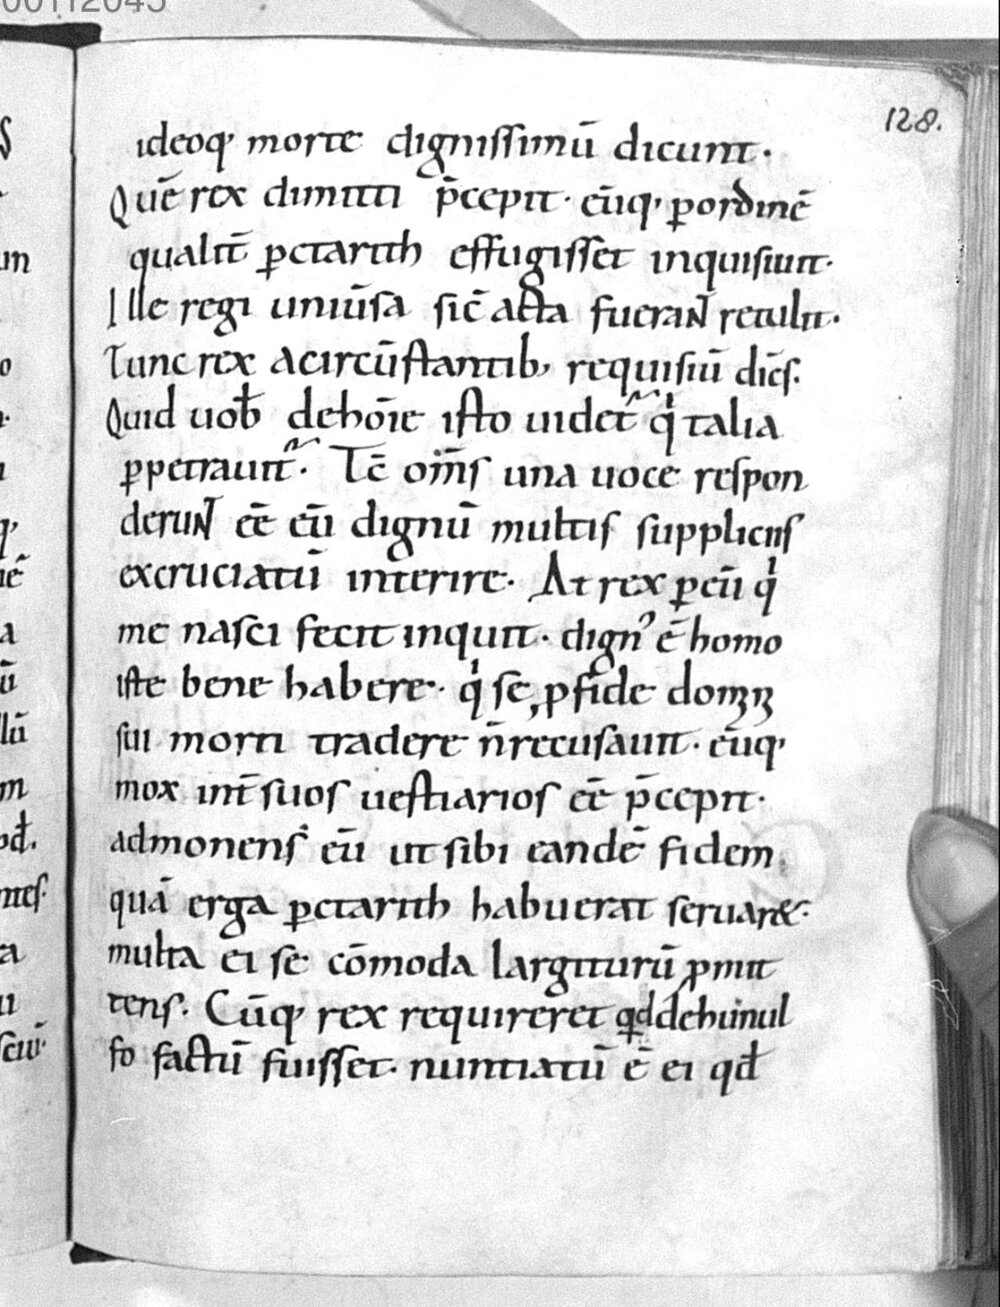 00112045
128.
ideoq; morte dignissimū dicunt.
Quē rex dimitti p̄cepit. eūq; ꝑordinē
qualit̄ ꝑctarith effugisset inquisiuit.
Ille regi uniūsa sic̄ acta fuerant retulit.
Tunc rex acircūstantib; requisiū dic̄s.
Quid uob̄ dehōīe isto uidet̄ qͥ talia
ꝑpetrauit. Tē om̄s una uoce respon
derunt eē eū dignū multis suppliciis
excruciatū interire. At rex ꝑ eū qͥ
me nasci fecit inquit. dign᾿ ē homo
iste bene habere. qͥ se ꝓfide domꝫꝫ
sui morti tradere n̄recusauit. eūq;
mox int̄ suos uestiarios eē p̄cepit.
admonens eū ut sibi eandē fidem
quā erga ꝑctarith habuerat seruar&.
multa ei se cōmoda largiturū ꝓmit
tens. Cūq; rex requireret qd dehuinul
fo factū fuisset. nuntiatū ē ei qđ